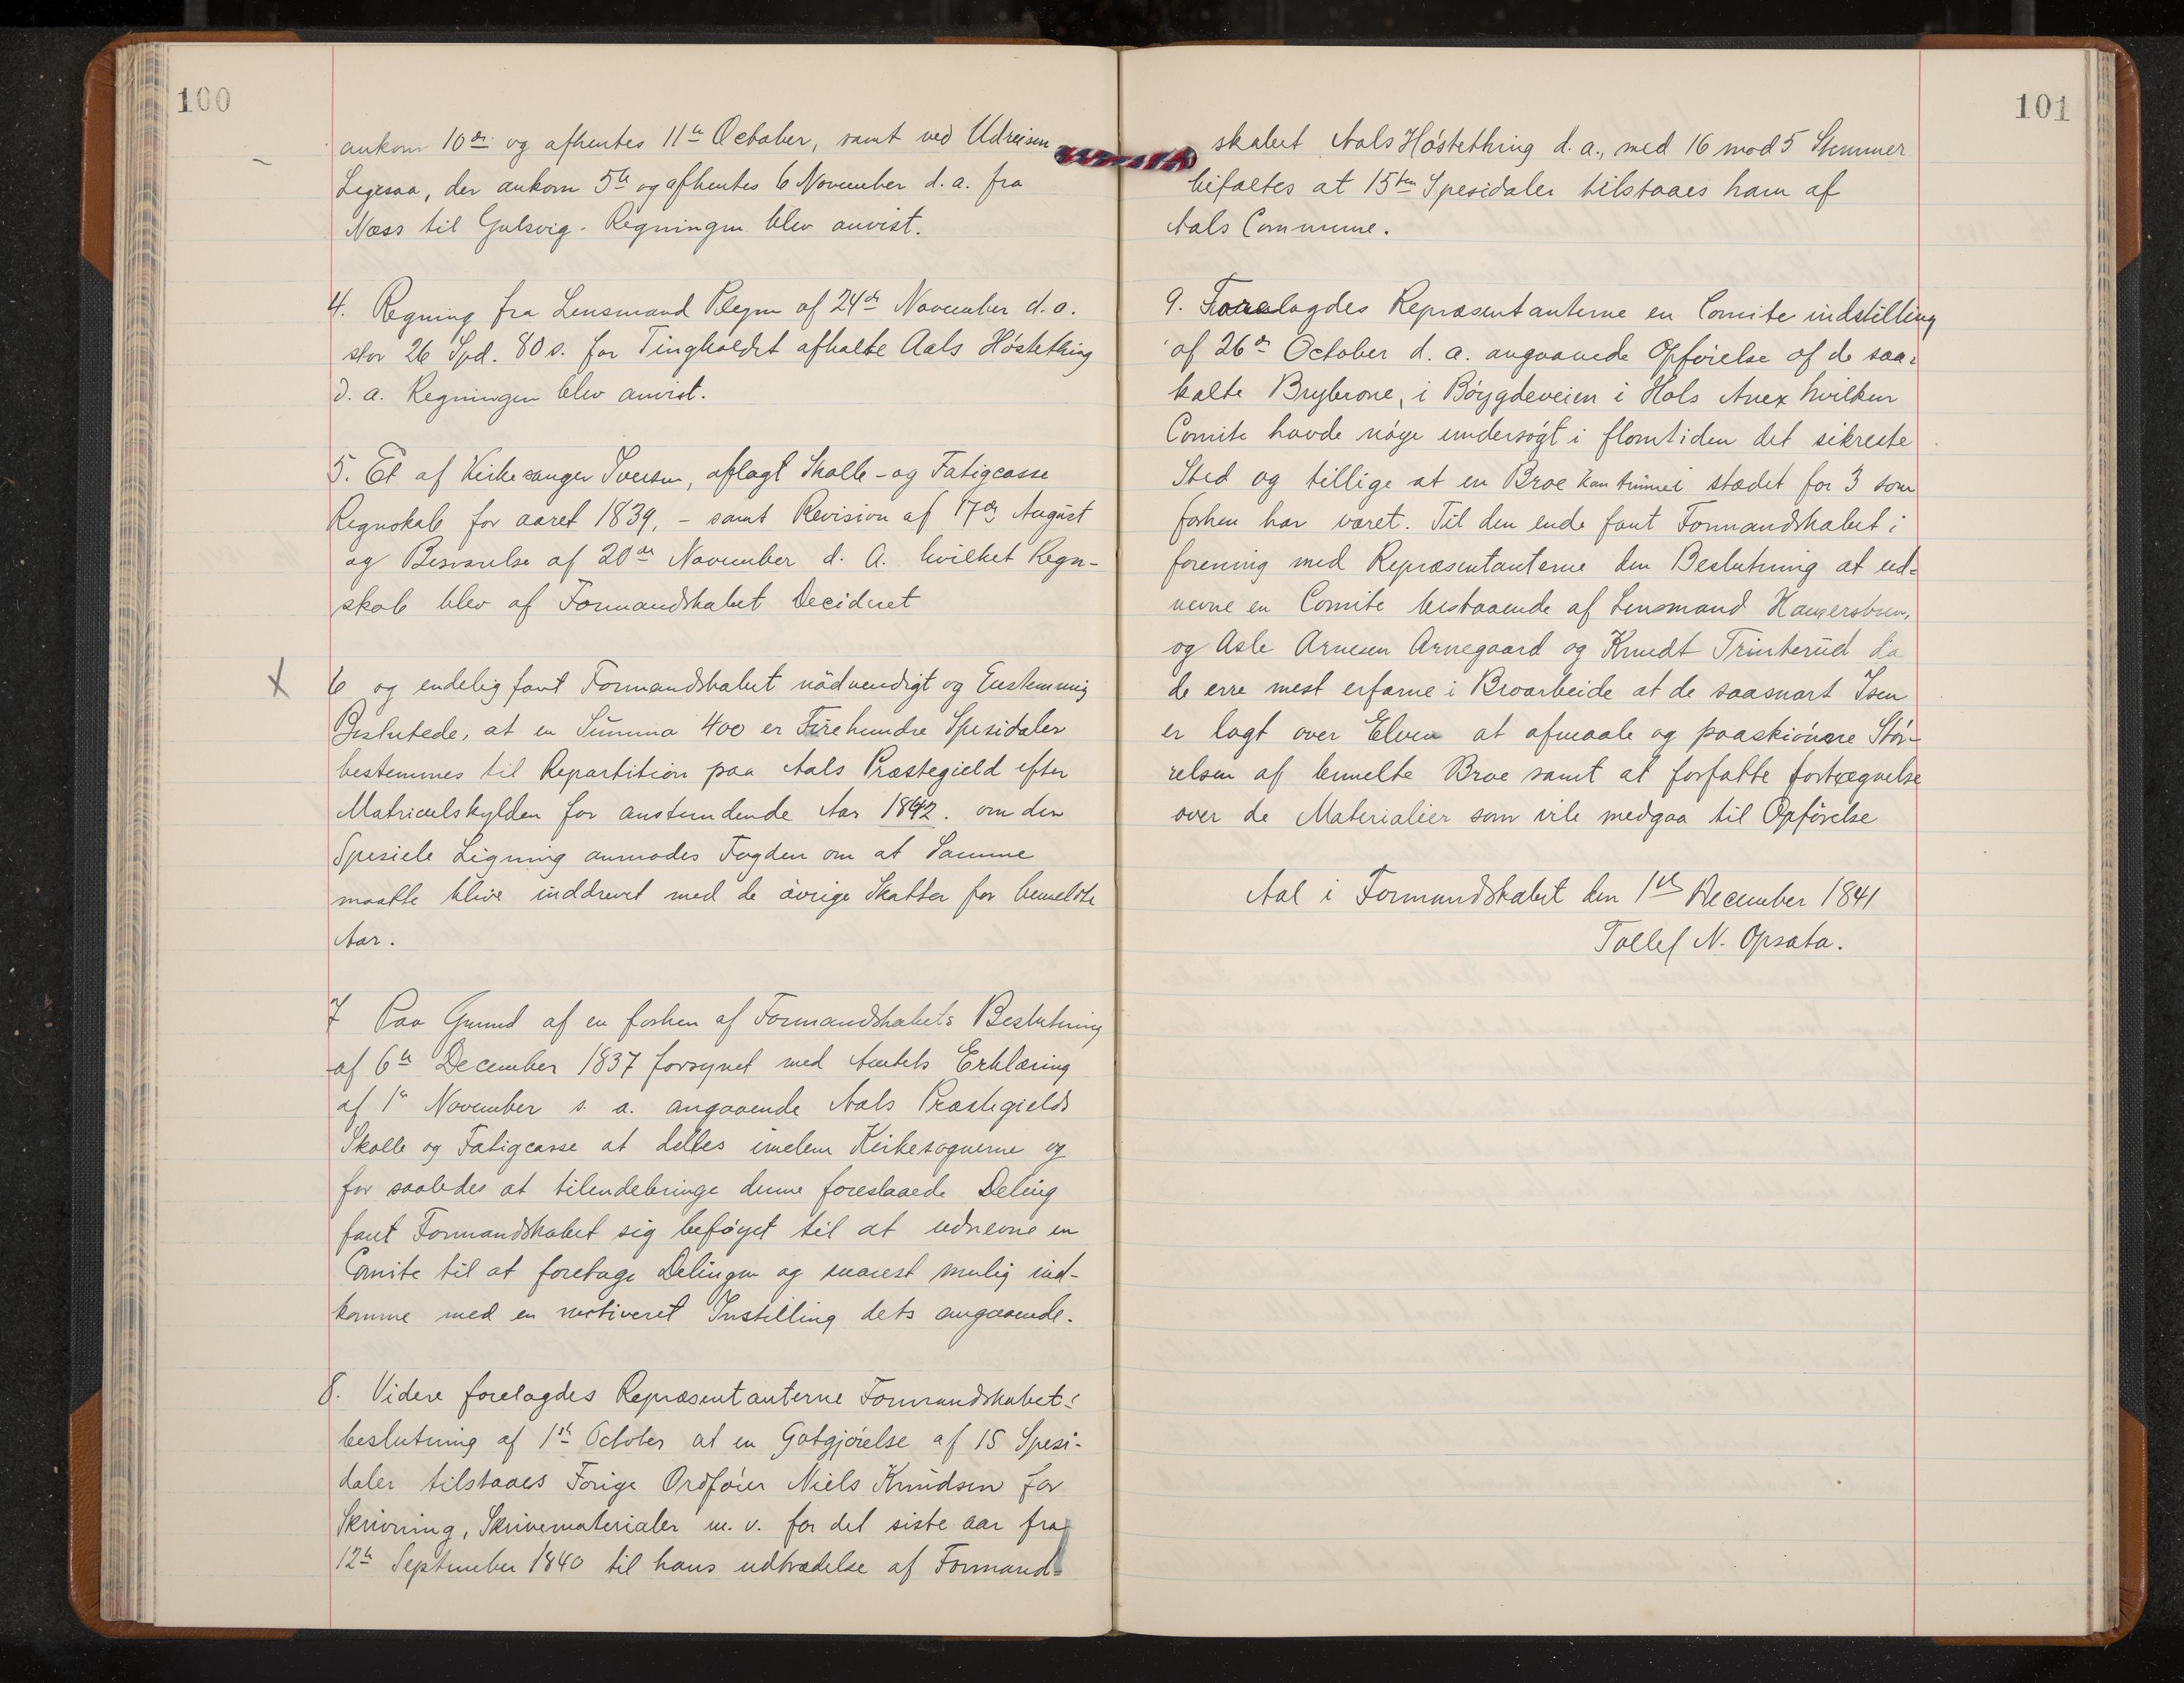 100
ankom 10de og afhentes 11te October, samt ved Udreisen
Ligesaa, der ankom 5te og afhentes 6 November d. a. fra
Næss til Gulsvig. Regningen blev anvist.
4. Regning fra Lensmand Plegen af 24de November d. a.
stor 26 Spd. 80 s. for Tingholdet afholte Aals Høstething
d. a. Regningen blev anvist.
5. Et af Kirkesanger Iversen, aflagt Skolle- og Fatigcasse
Regnskab for aaret 1839, - samt Revision af 17de August
og Besvarelse af 20de November d. A. hvilket Regn-
skab blev af Formandskabet Decideret
6 og endelig fant Formandskabet nødvendigt og Enstemmig
Beslutede, at en Summa 400 er Fire hundre Spesidaler
bestemmes til Repartition paa Aals Præstegield efter
Matriculskylden for anstundende Aar 1842. om den
Spesiele Ligning anmodes Fogden om at Samme
maatte blive inddrevet med de øvrige Skatter for bemeldte
Aar.
7 Paa Grund af en forhen af Formandskabets Beslutning
af 6te December 1837 forsynet med Amtets Erklæring
af 1ste November s. a. angaaende Aals Præstegields
Skolle og Fatigcasse at delles imelem Kirkesognerne og
for saaledes at tilendebringe denne foreslaaede Deling
fant Formandskabet sig beføyet til at udnevne en
Comite til at foretage Delingen og snarest mulig ind-
komme med en motiveret Instilling dets angaaende.
8. Videre forelagdes Repræsentanterne Formandskabets
beslutning af 1ste October at en Gotgjørelse af 15 Spesi-
daler tilstaaes Forige Ordfører Niels Knudsen for
Skrivning, Skrivematerialer m. v. for det siste aar fra
12te September 1840 til hans udtrædelse af Formand-
101
skabet Aals Høstething d. a., med 16 mod 5 Stemmer
bifaltes at 15ten Spesidaler tilstaaes ham af
Aals Commune.
9. Forelagdes Repræsentanterne en Comite indstilling
af 26de October d. a. angaaende Opførelse af de saa-
kalte Brybrone, i Bøygdeveien i Hols Anex hvilken
Comite havde nøye undersøgt i flomtiden det sikreste
Sted og tillige at en Broe kan stædet for 3 som
forhen har været. Til den ende fant Formandskabet i
forening med Repræsentanterne den Beslutning at ud-
nevne en Comite bestaaende af Lensmand
og Asle Arnesen Arnegaard og Knudt Trinterud da
de erre mest erfarne i Broarbeide at de saasnart Isen
er lagt over Elven at afmaale og paaskiønne Stør-
relsen af bemelte Broe samt at forfatte fortegnelse
over de Materialier som vile medgaa til Opførelse
Aal i Formandskabet den 1ste December 1841
Tollef N. Opsata.